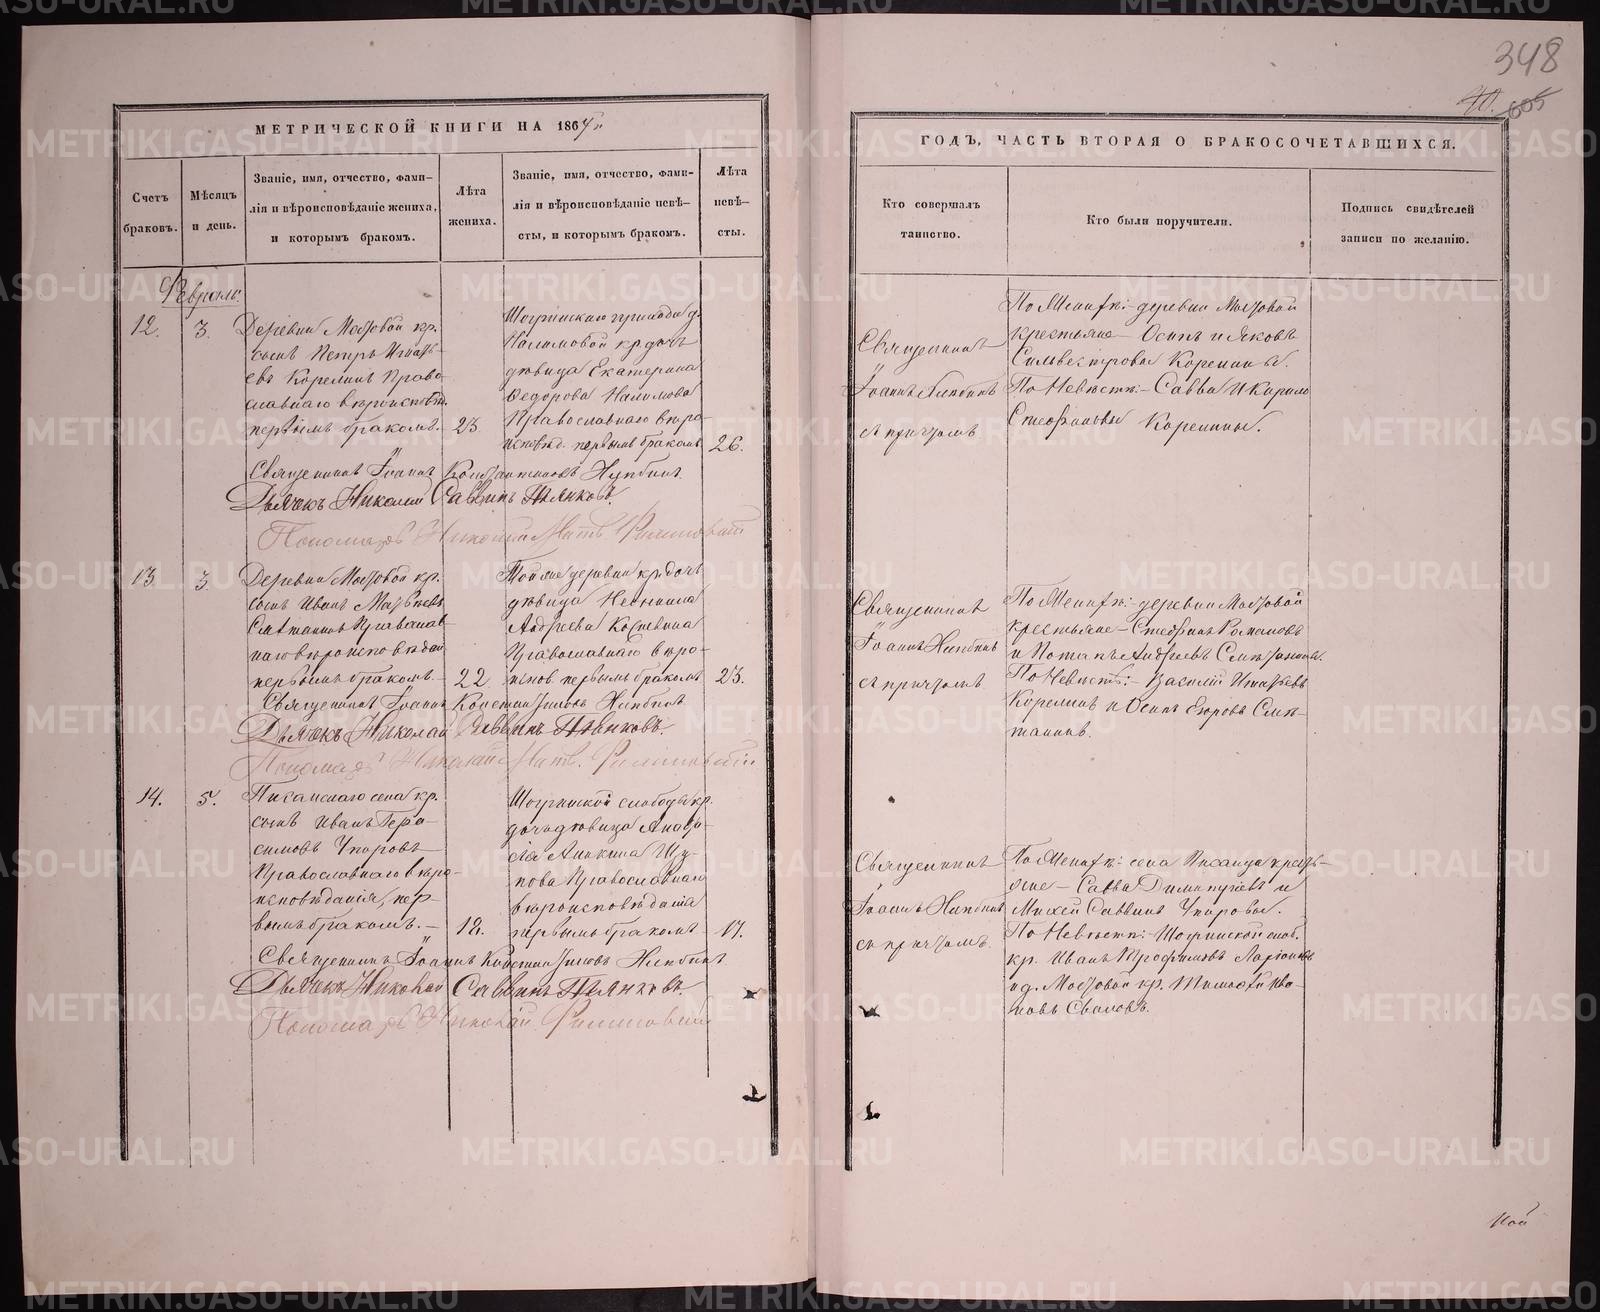 348
605
МЕТРИЧЕСКОЙ КНИГИ НА 1864
ГОДЪ, ЧАСТЬ ВТОРАЯ О БРАКОСОЧЕТАВШИХСЯ.
Счетъ браковъ.
Мѣсяцъ и день.
Званіе, имя, отчество, фами-
лія и вѣроисповѣданіе жениха,
и которымъ бракомъ.
Лѣта жениха.
Званіе, имя, отчество, фами-
лія и вѣроисповѣданіе невѣ-
сты, и которымъ бракомъ.
Лѣта невѣ-
сты.
Кто совершалъ
таинство.
Кто были поручители.
Подпись свидѣтелей
записи по желанію.
Февраль.
12.
3.
Деревни Мостовой кр.
сынъ Петръ Игнать-
евъ Корелинъ Право-
славнаго вѣроисповѣд.
первымъ бракомъ.
23.
прихода д.
Налимовой кр. дочь
дѣвица Екатерина
Ѳедорова Налимова
Православнаго вѣро-
исповѣд. первымъ бракомъ
26.
Священникъ
Іоаннъ
съ причтомъ
По Женихѣ: деревни Мостовой
крестьяне - Осипъ и Яковъ
Сильвестровы Корелины.
По Невѣстѣ: Савва и Кирило
Стефановы Корелины.
Священникъ Іоаннъ Константиновъ
Дьячекъ Николай Саввинъ Пьянковъ.
Пономарь Николай
13.
3.
Деревни Мостовой кр.
сынъ Иванъ Матвѣевъ
Сметанинъ Православ-
наго вѣроисповѣдан.
первымъ бракомъ.
22
Той же деревни кр. дочь
дѣвица
Андреева Корелина
Православнаго вѣро-
испов. первымъ бракомъ
23.
Священникъ
Іоаннъ
съ причтомъ
По Женихѣ: деревни Мостовой
крестьяне - Стефанъ Романовъ
и Потапъ Андреевъ
По Невѣстѣ: Василій Игнатьевъ
Корелинъ и Осипъ Егоровъ Сме-
танинъ.
Священникъ Іоаннъ Константиновъ
Дьячекъ Николай Саввинъ Пьянковъ.
Пономарь Николай
14.
5.
Писанскаго села кр.
сынъ Иванъ Гера-
симовъ Упоровъ
Православнаго вѣро-
исповѣданія, пер-
вымъ бракомъ.
18.
слободы кр.
дочь дѣвица
Православнаго
вѣроисповѣданія
первымъ бракомъ
17.
Священникъ
Іоаннъ
съ причтомъ.
По Женихѣ: села Писанца кресть-
яне - Савва и
Михей Саввинъ Упоровы.
По Невѣстѣ: слоб.
кр. Иванъ Трофимовъ
и д. Мостовой кр. Тимофей Ива-
новъ
Священникъ Іоаннъ Константиновъ
Дьячекъ Николай Саввинъ Пьянковъ.
Пономарь Николай
METRIKI.GASO-URAL.RU